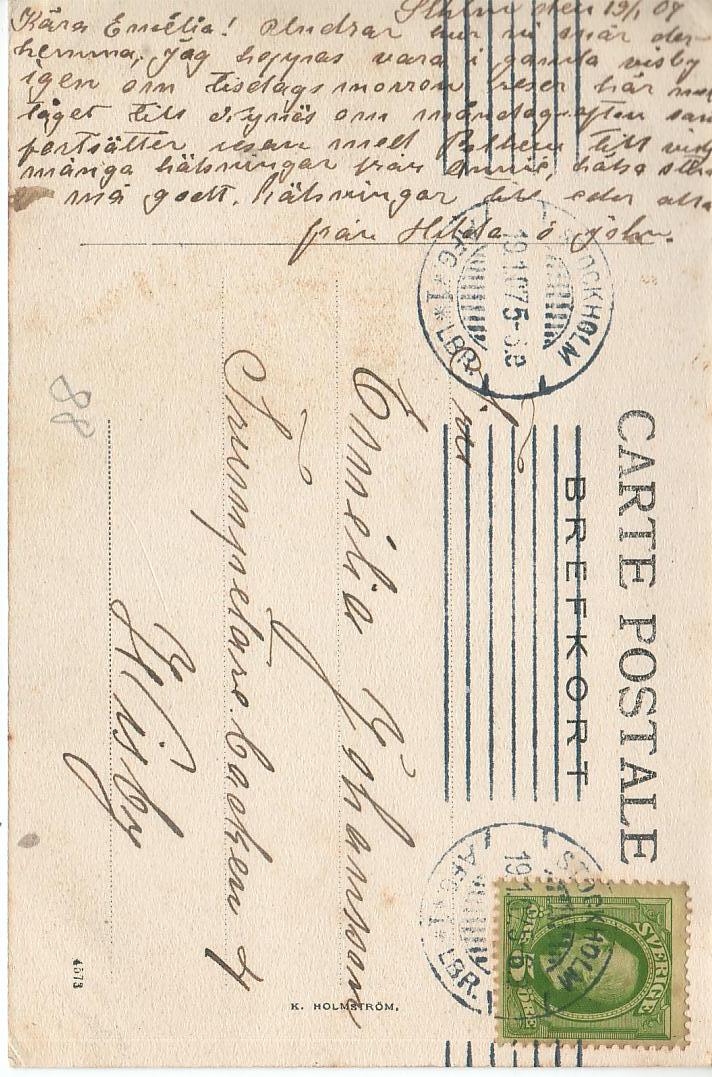 Sthlm den 19/1 07
Kära Emélia! Undrar hur ni mår der-
hemma, jag hoppas vara i gamla visby
igen om tisdags morron reser här med
tåget till nynäs om måndag afton sam
fortsätter resan med till visby
många hälsningar från Annie, hälsa
må godt. hälsningar till eder alla
från Hilda o John.
CARTE POSTALE
BREFKORT
STOCKHOLM
19.1.07 5-6.E
AFG*1*LBR.
STOCKHOLM
19.1.07
AFG*1*LBR.
SVERIGE
5
ÖRE
Emélia Johansson
Trumpetarebacken 4
Wisby
88
4573
K. HOLMSTRÖM.